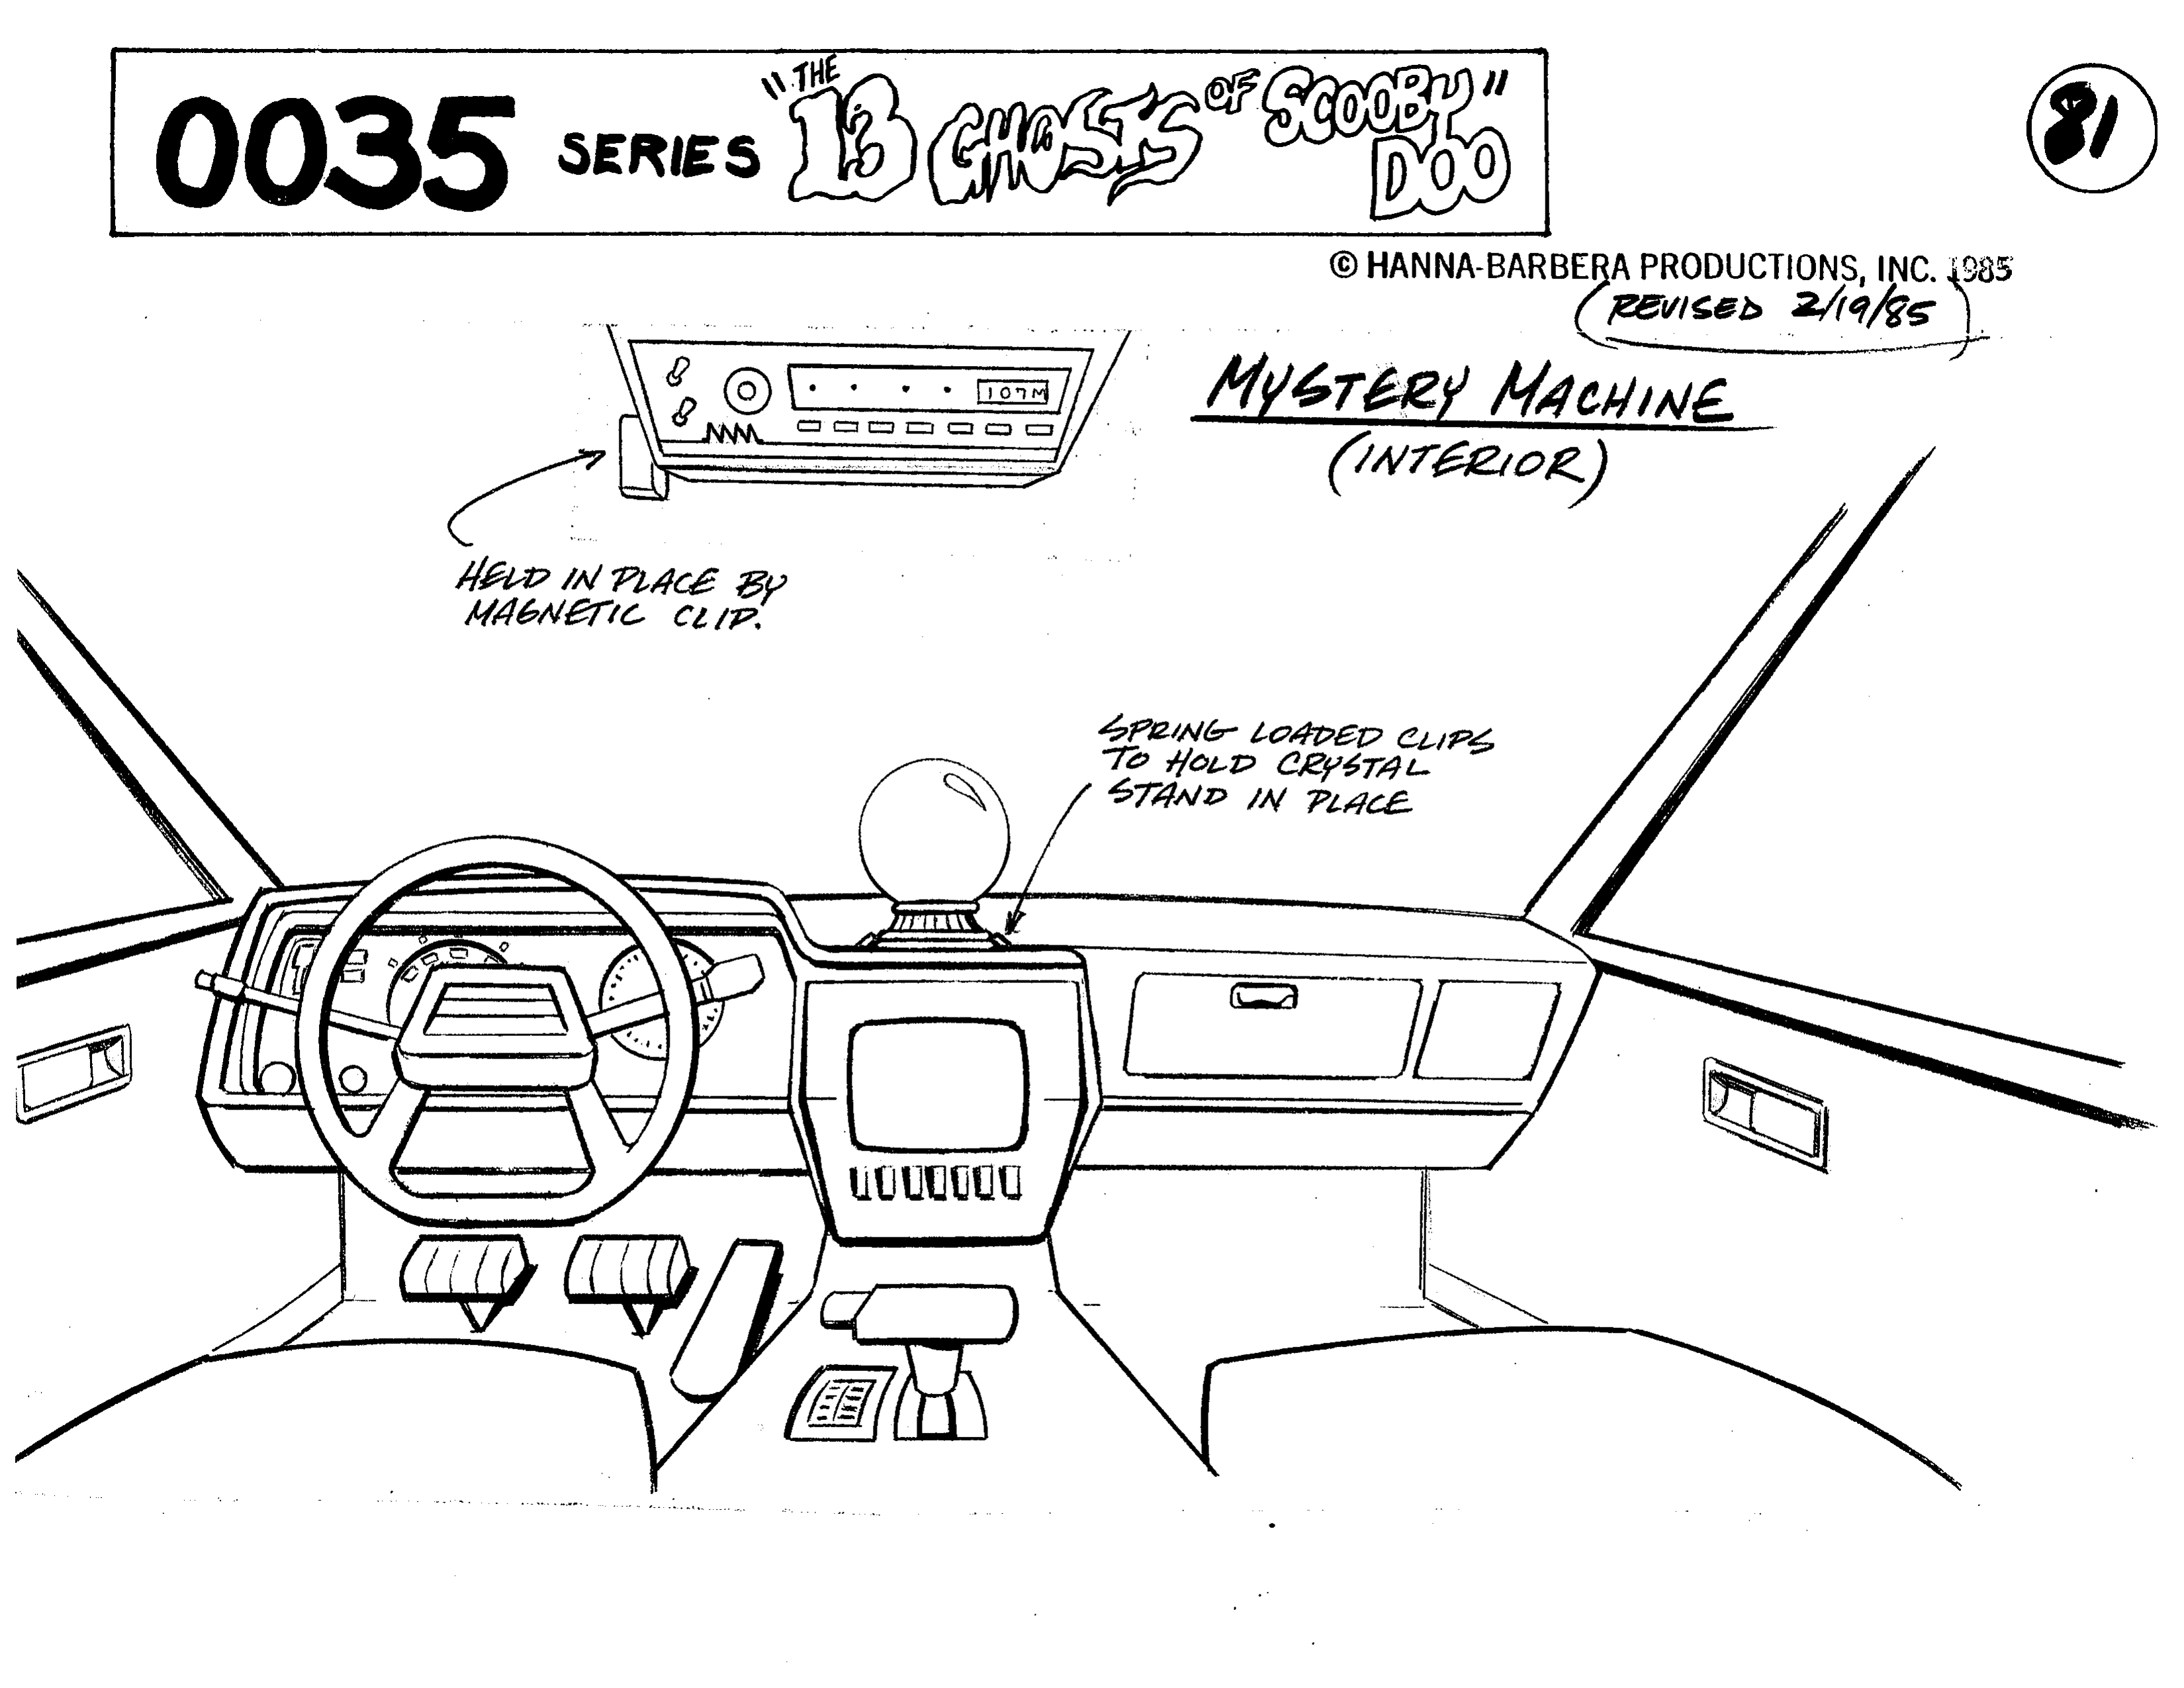 0035 SERIES "THE 13 GHOSTS OF SCOOBY DOO"
81
© HANNA-BARBERA PRODUCTIONS, INC. 1985
(REVISED 2/19/85)
107M
MYSTERY MACHINE
(INTERIOR)
HELD IN PLACE BY
MAGNETIC CLIP.
SPRING LOADED CLIPS
TO HOLD CRYSTAL
STAND IN PLACE